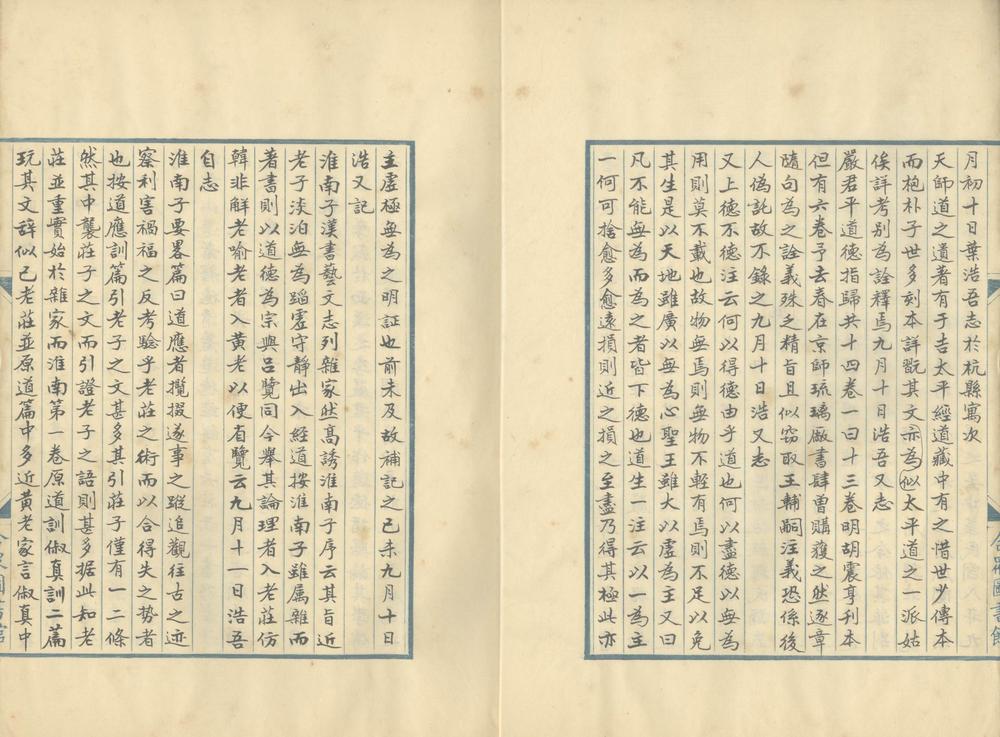 月初十日葉浩吾志於杭縣寓次
天師道之道著有于吉太平經道藏中有之惜世少傳本
而抱朴子世多刻本詳翫其文亦為似太平道之一派姑
俟詳考别為詮釋焉九月十日浩吾又志
嚴君平道德指歸共十四卷一曰十三卷明胡震亨刊本
但有六卷予去春在京師琉璃廠書肆曾購獲之然逐章
隨句為之詮義殊乏精旨且似窃取王輔嗣注義恐係後
人偽託故不錄之九月十日浩又志
又上德不德注云何以得德由乎道也何以盡德以無為
用則莫不載也故物無焉則無物不輕有焉則不足以免
其生是以天地雖廣以無為心聖王雖大以虛為主又曰
凡不能無為而為之者皆下德也道生一注云以一為主
一何可捨愈多愈遠損則近之損之至盡乃得其極此亦
主虛極無為之明証也前未及故補記之己未九月十日
浩又記
淮南子漢書藝文志列雜家然高誘淮南子序云其旨近
老子淡泊無為蹈虛守靜出入經道按淮南子雖属雜而
著書則以道德為宗與吕覽同今舉其論理者入老莊仿
韓非解老喻老者入黄老以便省覽云九月十一日浩吾
自志
淮南子要畧篇曰道應者攬掇遂事之蹤追觀往古之迹
察利害禍福之反考驗乎老莊之術而以合得失之勢者
也按道應訓篇引老子之文甚多其引莊子僅有一二條
然其中襲莊子之文而引證老子之語則甚多据此知老
莊並重實始於雜家而淮南第一卷原道訓俶真訓二篇
玩其文辞似已老莊並原道篇中多近黄老家言俶真中
合眾圖書館
合眾圖書館